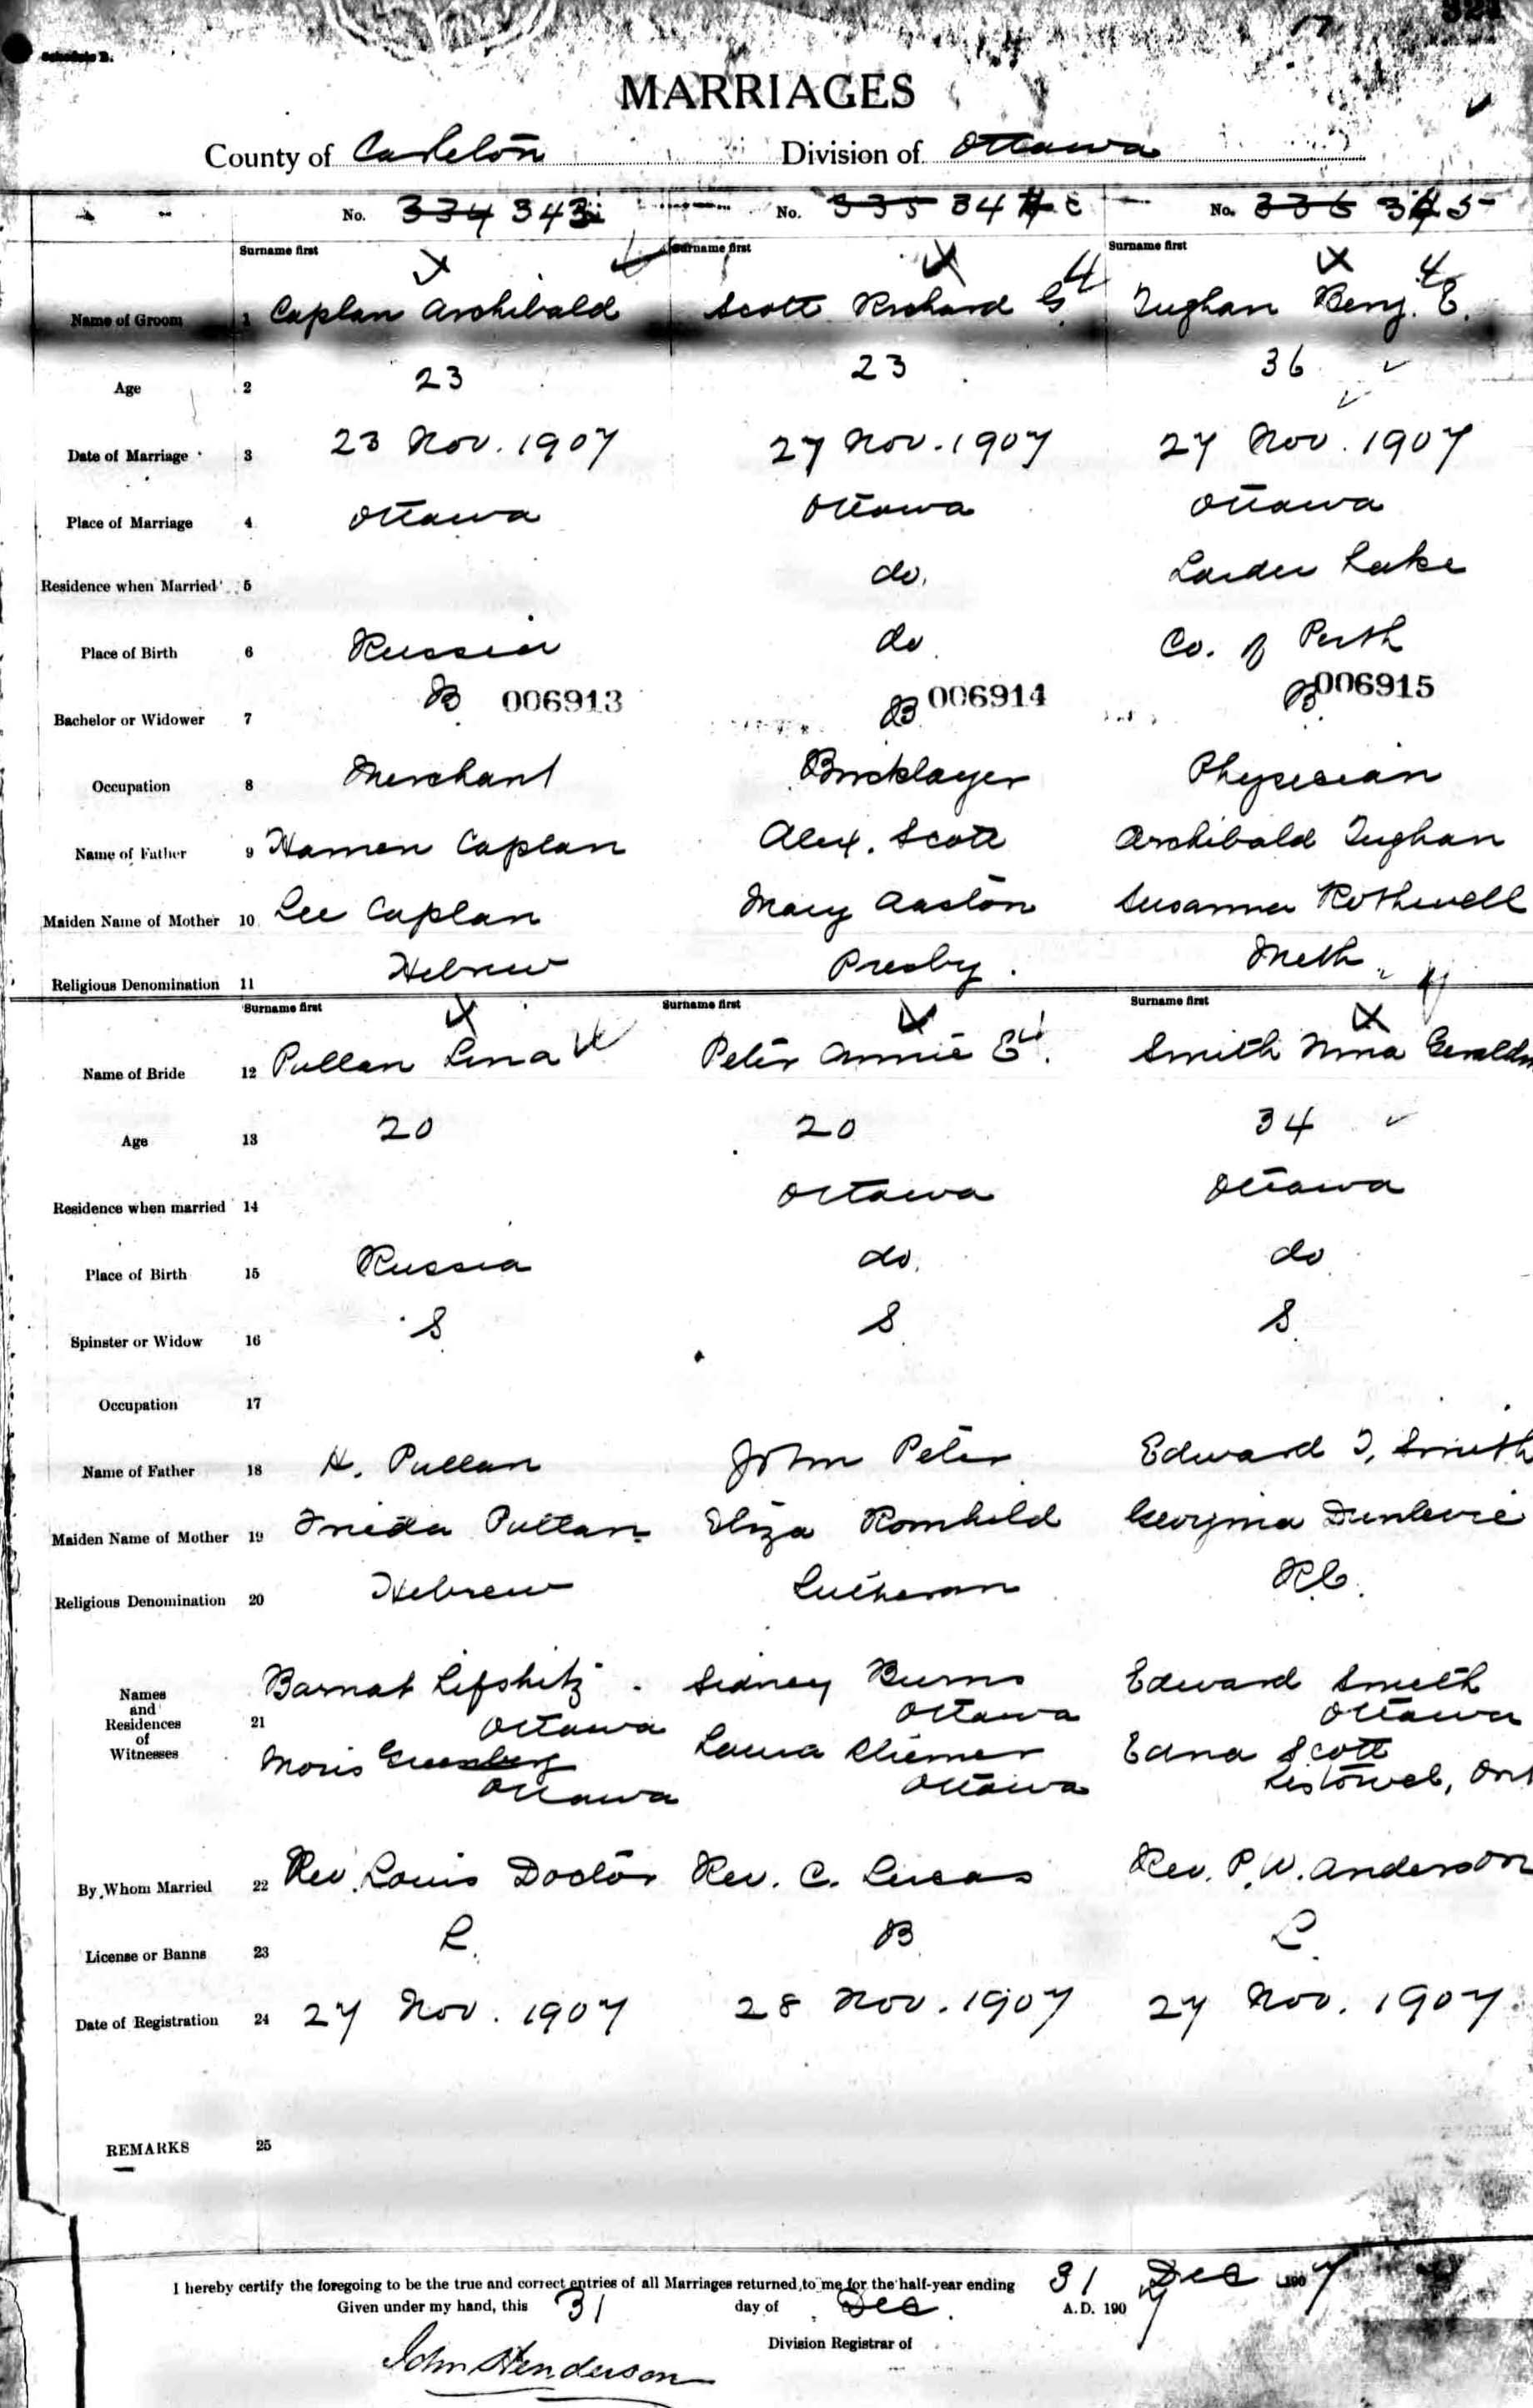 Schedule B.
MARRIAGES
County of Carleton Division of Ottawa
No. 334 343 No. 335 344 No. 336 345
Surname first Surname first Surname first
Name of Groom 1 Caplan Archibald Scott Richard G. Tughan Benj. E.
Age 2 23 23 36
Date of Marriage 3 23 Nov. 1907 27 Nov. 1907 27 Nov. 1907
Place of Marriage 4 Ottawa Ottawa Ottawa
Residence when Married 5 do. Larder Lake
Place of Birth 6 Russia do Co. of Perth
Bachelor or Widower 7 B 006913 B 006914 B 006915
Occupation 8 Merchant Bricklayer Physician
Name of Father 9 Hamen Caplan Alex. Scott Archibald Tughan
Maiden Name of Mother 10 Lee Caplan Mary Aaston Susanna Rothwell
Religious Denomination 11 Hebrew Presby. Meth
Surname first Surname first Surname first
Name of Bride 12 Pullan Lena Peter Annie E. Smith Nina
Age 13 20 20 34
Residence when married 14 Ottawa Ottawa
Place of Birth 15 Russia do. do
Spinster or Widow 16 S S S
Occupation 17
Name of Father 18 H. Pullan John Peter Edward T. Smith
Maiden Name of Mother 19 Frieda Pullan Eliza Romhild Georgina Dunlevie
Religious Denomination 20 Hebrew Lutheran R.C.
Names and Residences of Witnesses 21
Barnat Lifshitz Sidney Burns Edward Smith
Ottawa Ottawa Ottawa
Moris Greenberg Laura Edna Scott
Ottawa Ottawa Listowel, Ont
By Whom Married 22 Rev. Louis Doctor Rev. C. Lucas Rev. P. W. Anderson
License or Banns 23 L. B L.
Date of Registration 24 27 Nov. 1907 28 Nov. 1907 27 Nov. 1907
REMARKS 25
I hereby certify the foregoing to be the true and correct entries of all Marriages returned to me for the half-year ending 31 Dec 1907
Given under my hand, this 31 day of Dec. A.D. 1907
Division Registrar of
John Henderson